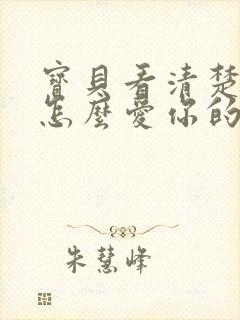 寶貝看清楚
怎麼愛你的
朱慧峰